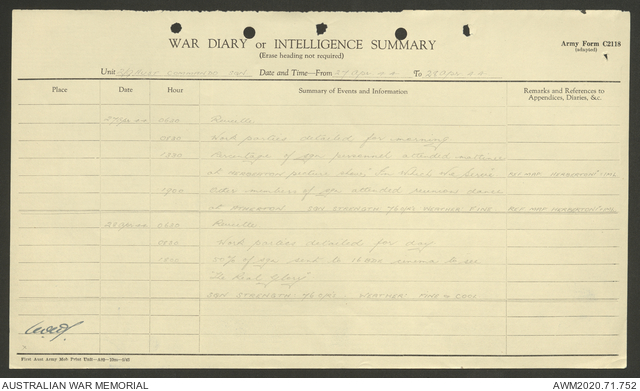 WAR DIARY or INTELLIGENCE SUMMARY
(Erase heading not required)
Army Form C2118
(adapted)
Unit COMMANDO SQN Date and Time—From 27 Apr 44 To 28 Apr 44
Place Date Hour Summary of Events and Information Remarks and References to Appendices, Diaries, &c.
27 Apr 44 0630 Reveille
0830 Work parties detailed for morning
1330 Percentage of sqn personnel attended matinee
at HERBERTON picture show, "In Which We Serve" REF MAP HERBERTON 1 MIL
1900 Other members of sqn attended dance
at SQN STRENGTH WEATHER FINE REF MAP HERBERTON 1 MIL
28 Apr 44 0630 Reveille
0830 Work parties detailed for day
50% of sqn sent to cinema to see
"The Real Glory"
SQN STRENGTH WEATHER FINE & COOL
AUSTRALIAN WAR MEMORIAL
AWM2020.71.752